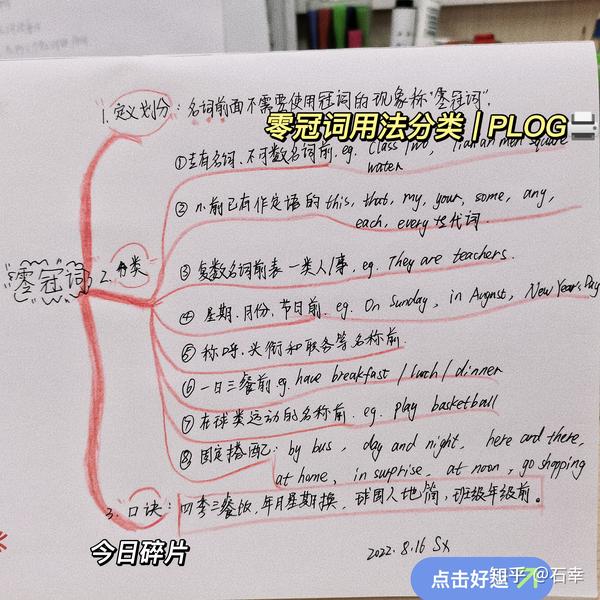 1. 定义划分：名词前面不需要使用冠词的现象称"零冠词"。
零冠词用法分类 | PLOG
①专有名词、不可数名词前. eg. Class Two, Tian'an men Square
water
② n.前已有作定语的 this, that, my, your, some, any,
each, every 性代词
零冠词
2. 分类
③ 复数名词前表一类人/事, eg. They are teachers.
④ 星期、月份、节日前. eg. On Sunday, in August, New Year's Day
⑤ 称呼、头衔和职务等名称前.
⑥ 一日三餐前 eg. have breakfast / lunch / dinner
⑦ 在球类运动的名称前. eg. play basketball
⑧ 固定搭配：by bus, day and night, here and there,
at home, in surprise, at noon, go shopping
3. 口诀：四季三餐饭, 年月星期换, 球国人地简, 班级年级前。
今日碎片
2022.8.16 Sx
知乎 @石幸
点击好运